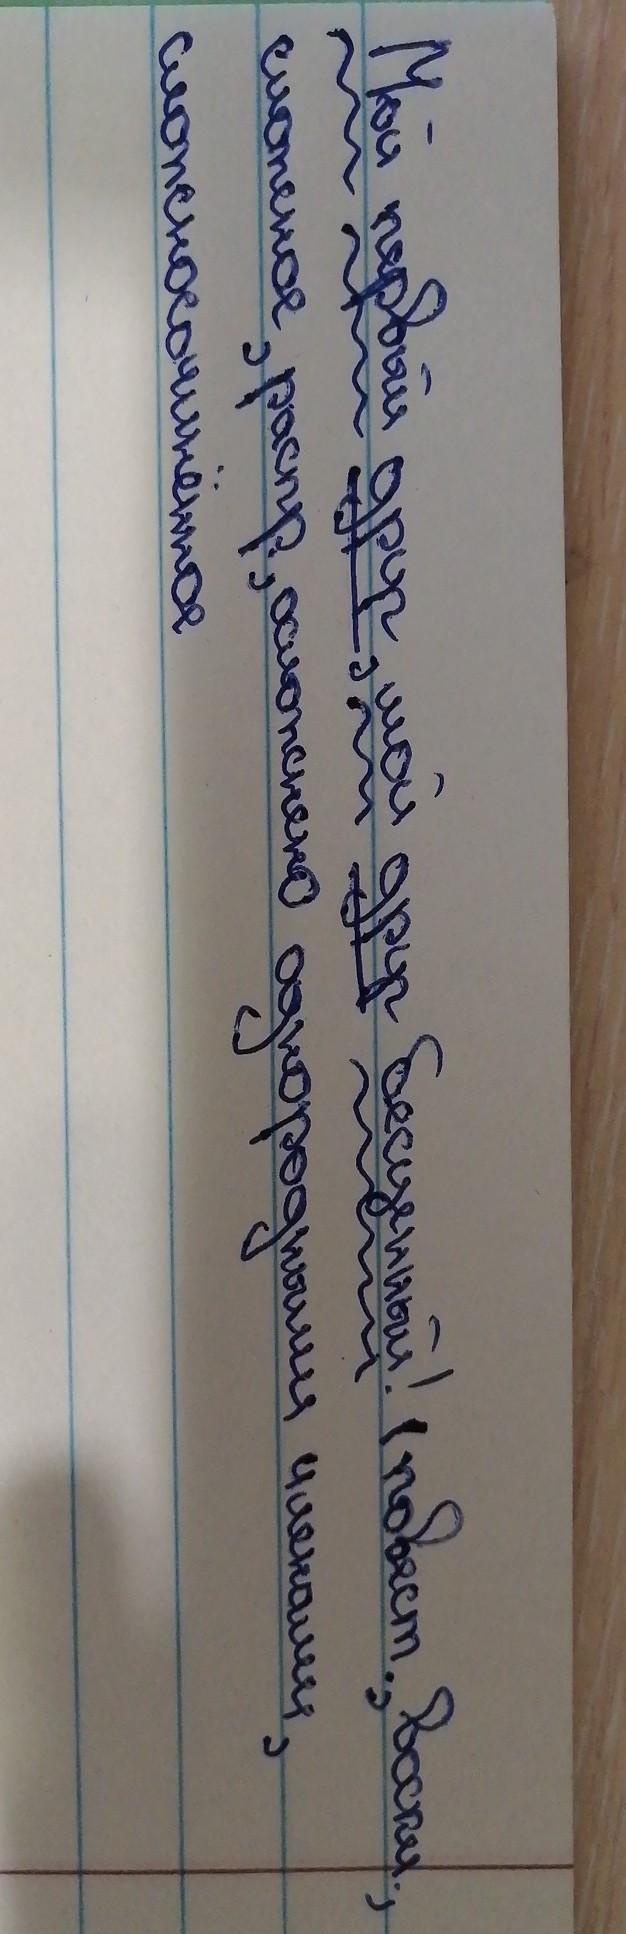 Мой первый друг, мой друг бесценный! (повест., воскл.,
сложное, распр., осложнено однородными членами,
сложносочинённое